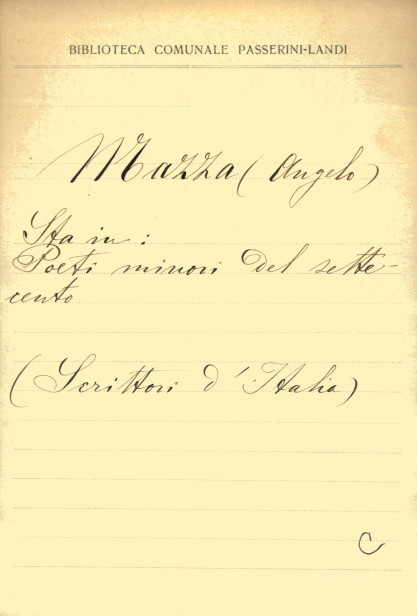 BIBLIOTECA COMUNALE PASSERINI-LANDI
Mazza (Angelo)
Sta in:
Poeti minori del sette-
cento
(Scrittori d'Italia)
C